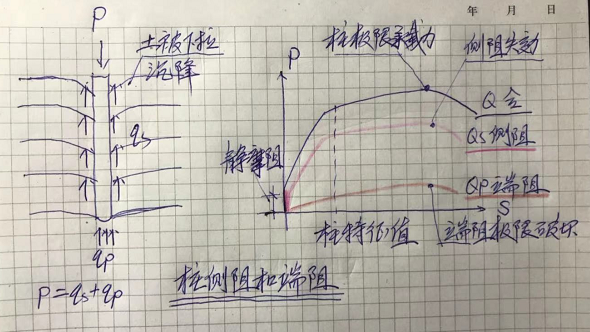 年 月 日
P
土被下拉
沉降
qs
qp
P=qs+qp
桩侧阻和端阻
桩极限承载力
侧阻失效
P
Q合
Qs侧阻
静摩阻
Qp端阻
S
桩特征值
端阻极限破坏